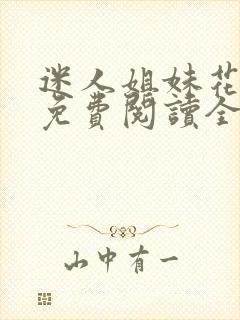 迷人姐妹花
免費閱讀全
山中有一